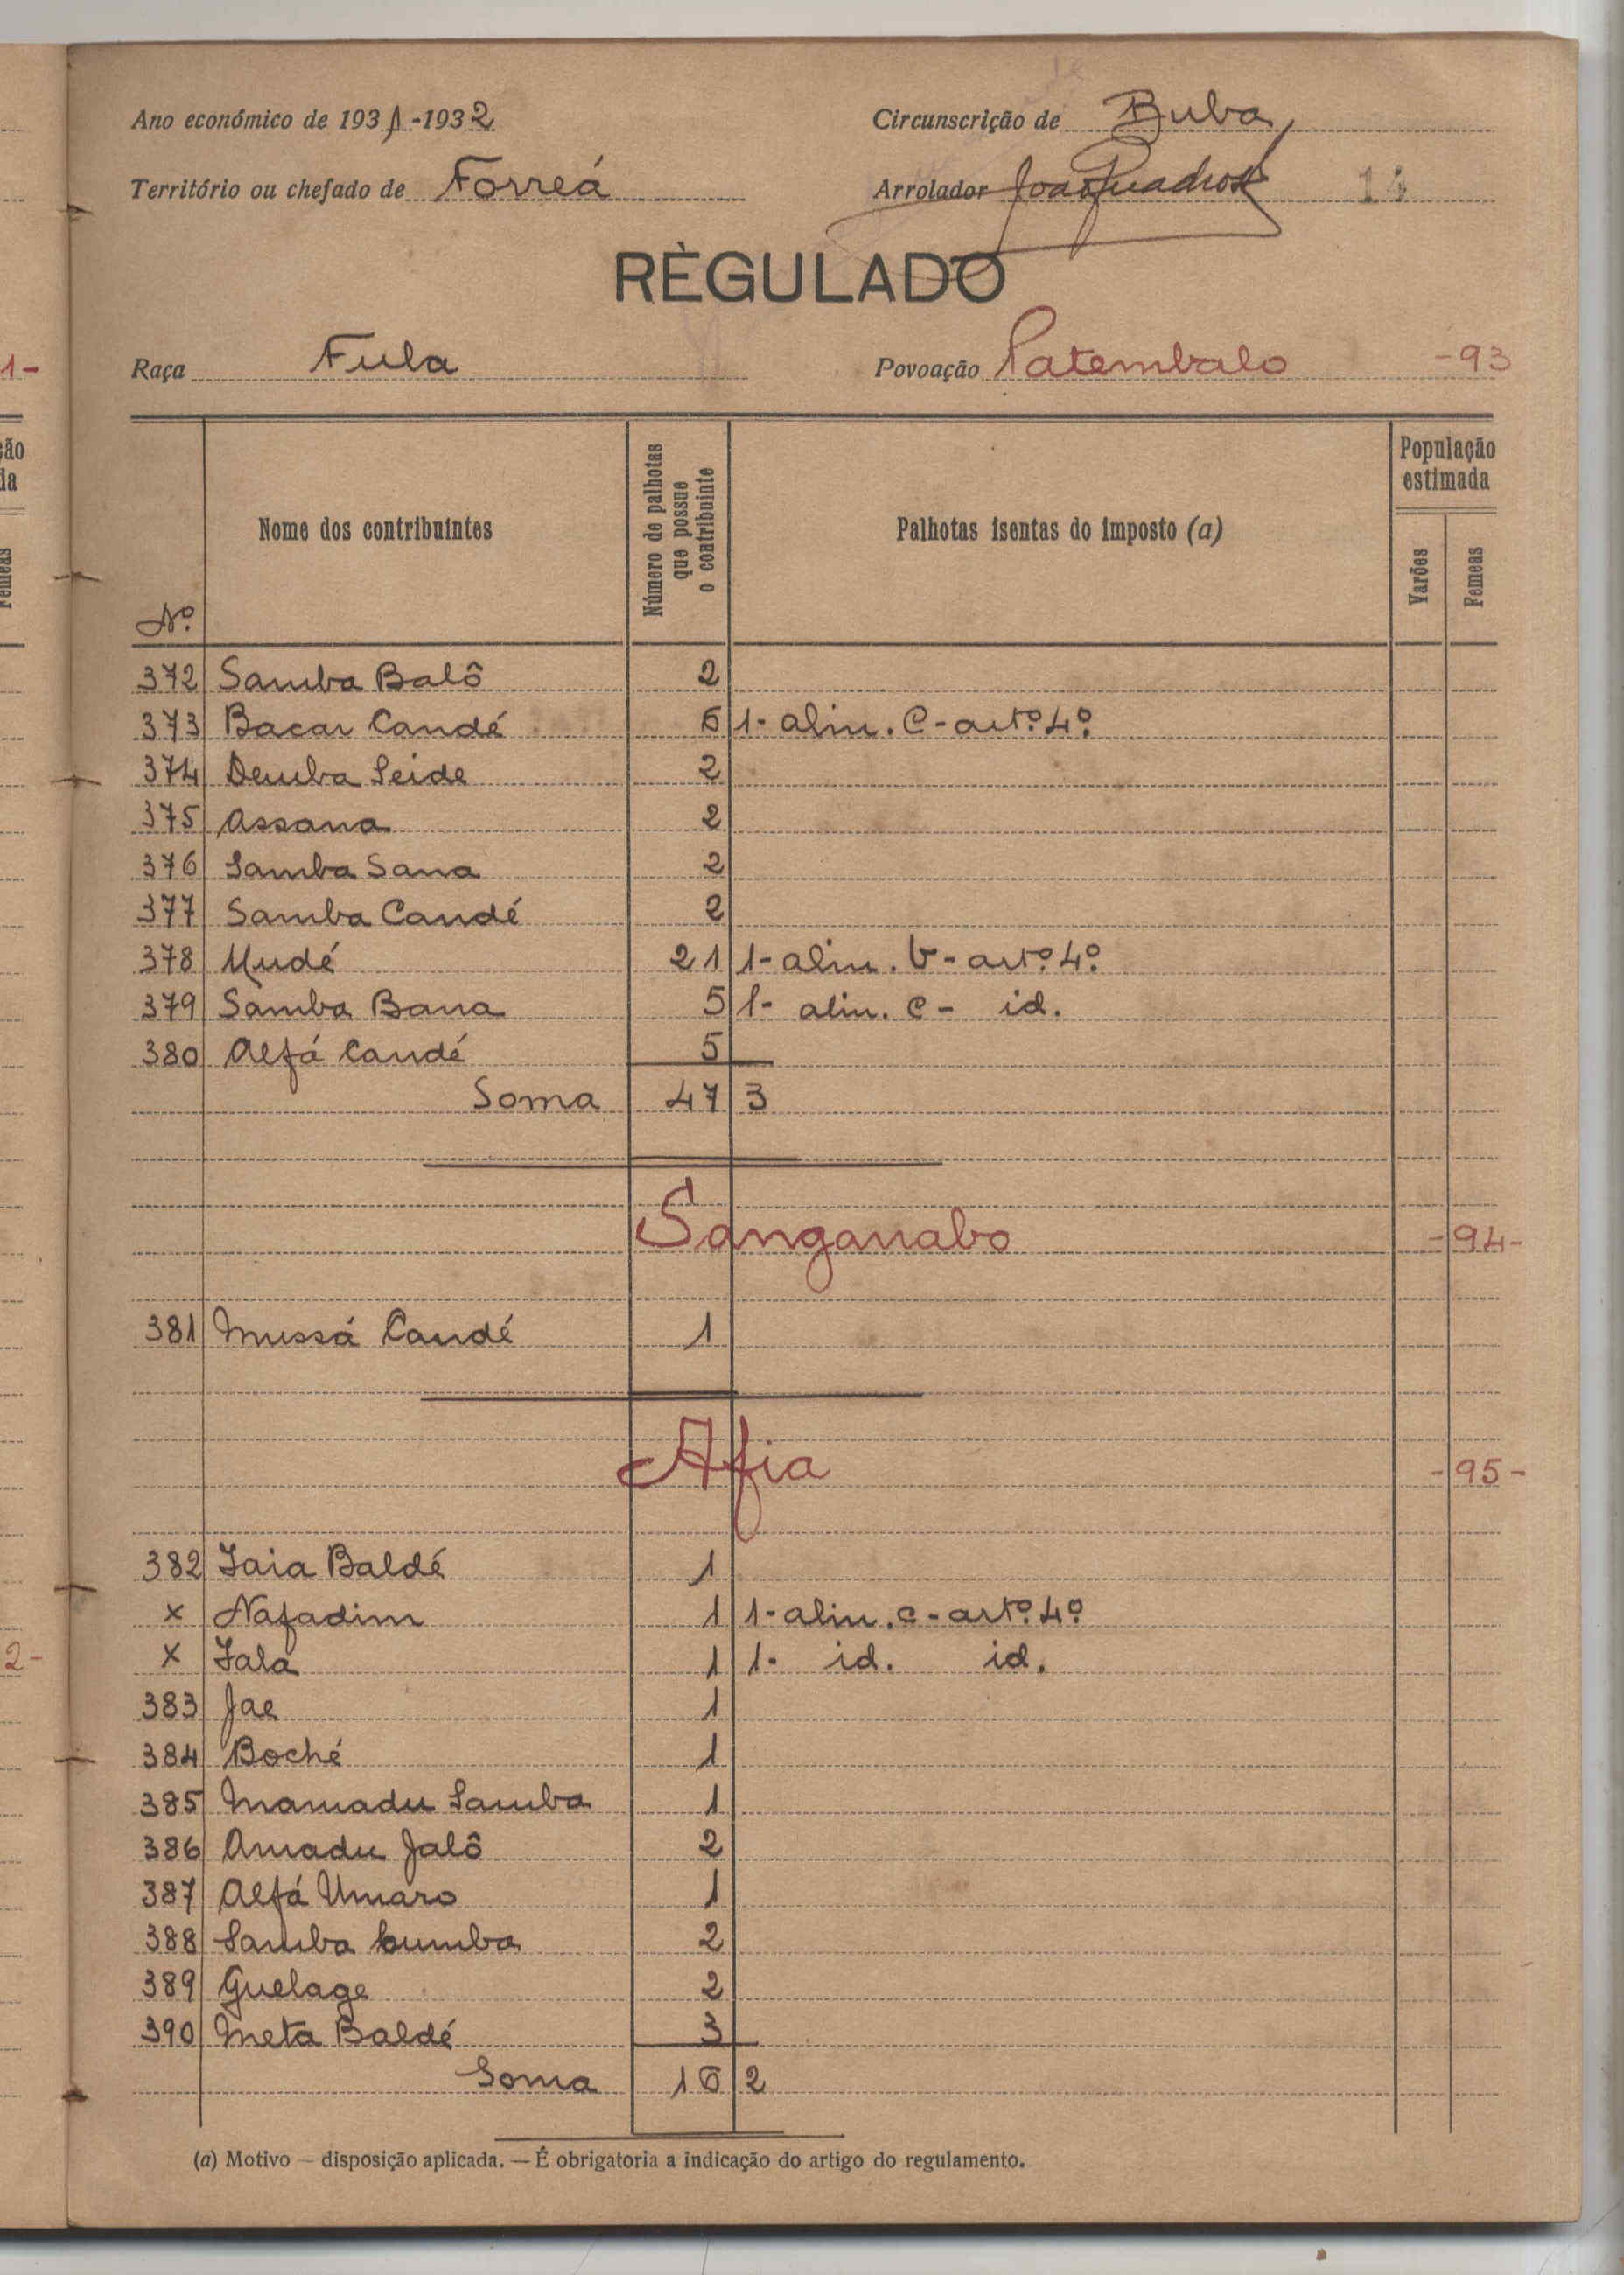 Ano económico de 1931-1932 Circunscrição de Buba
Território ou chefado de Forreá Arrolador João Quadros 14
RÈGULADO
Raça Fula Povoação Patembalo -93
Nº Nome dos contribuintes Número de palhotas que possue o contribuinte Palhotas isentas do imposto (a) População estimada Varões Femeas
372 Samba Balô 2
373 Bacar Candé 6 1- alin. C - artº 4º
374 Demba Seide 2
375 Assana 2
376 Samba Sana 2
377 Samba Candé 2
378 Mudé 21 1- alin. b - artº 4º
379 Samba Bana 5 1- alin. C - id.
380 Alfá Candé 5
Soma 47 3
Sanganabo -94-
381 Mussá Candé 1
Afia -95-
382 Iaia Baldé 1
x Nafadim 1 1- alin. c - artº 4º
x Iala 1 1- id. id.
383 Jae 1
384 Boché 1
385 Mamadu Samba 1
386 Amadu Jalô 2
387 Alfá Umaro 1
388 Samba Cumba 2
389 Guelage 2
390 Meta Baldé 3
Soma 16 2
(a) Motivo — disposição aplicada. — É obrigatoria a indicação do artigo do regulamento.